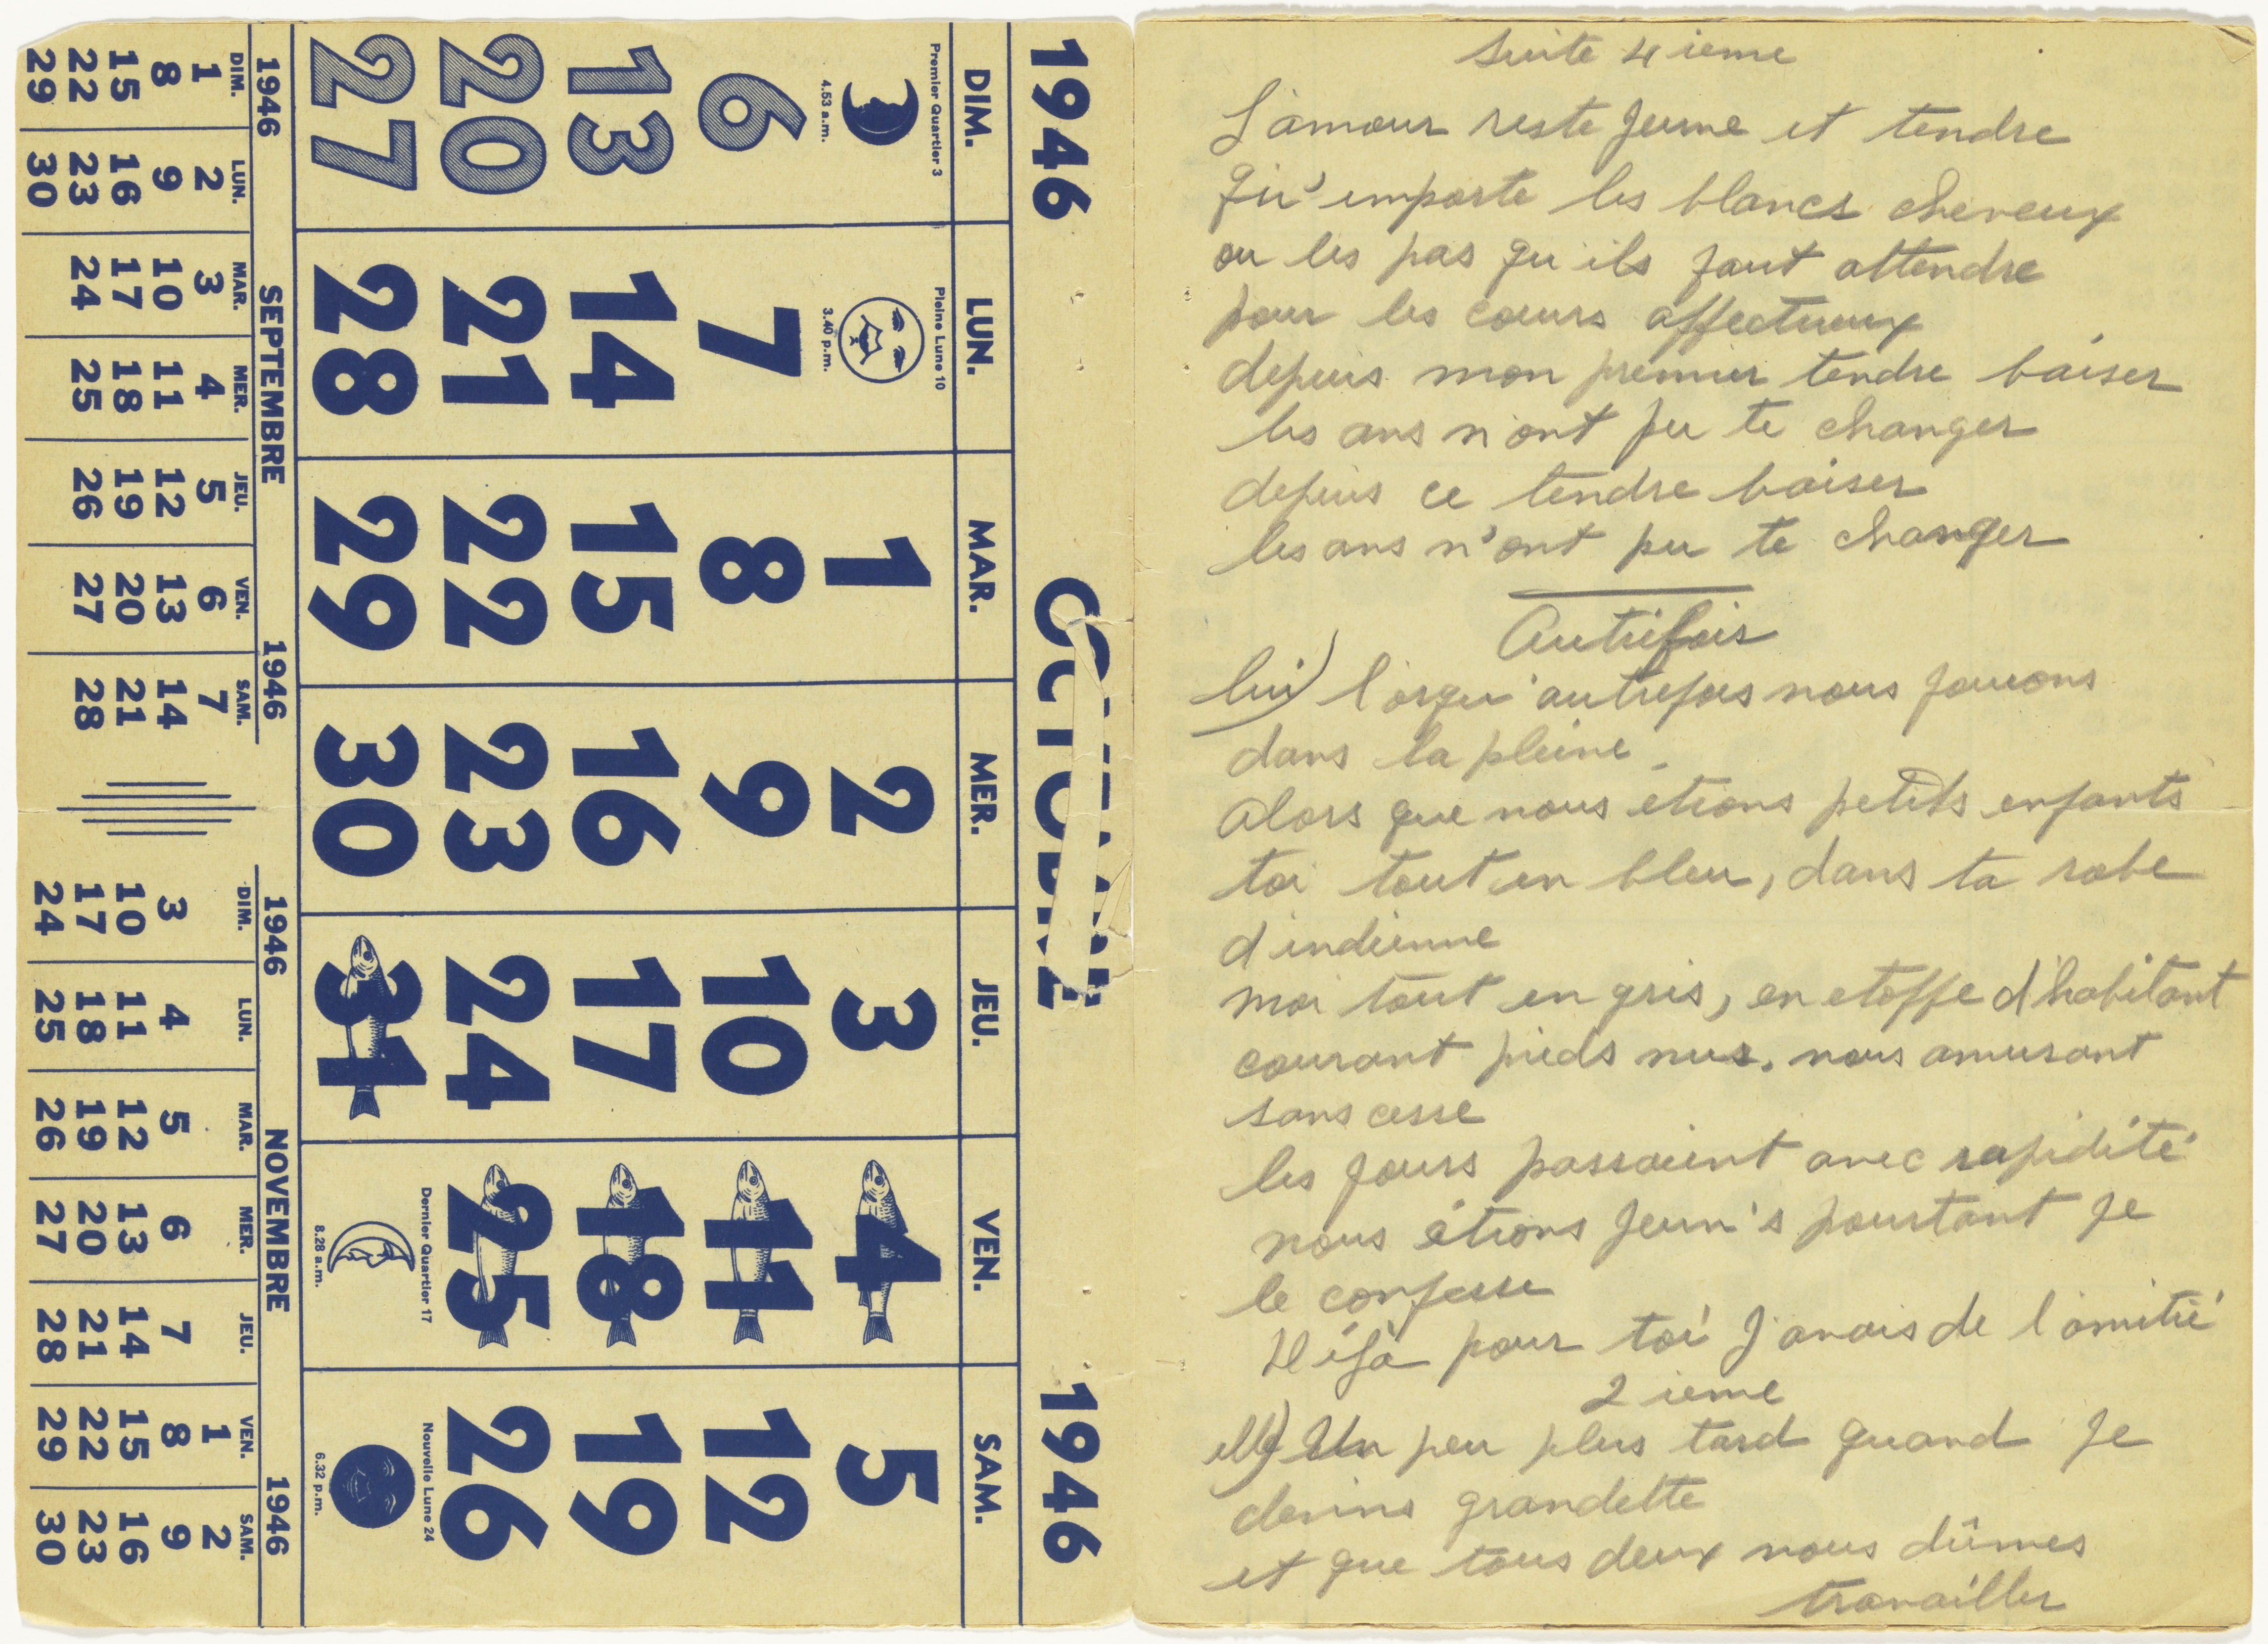 1946 OCTOBRE 1946
DIM. LUN. MAR. MER. JEU. VEN. SAM.
Premier Quartier 3
4.53 a.m.
Pleine Lune 10
3.40 p.m.
1 2 3 4 5
6 7 8 9 10 11 12
13 14 15 16 17 18 19
20 21 22 23 24 25 26
27 28 29 30 31
Dernier Quartier 17
8.28 a.m.
Nouvelle Lune 24
6.32 p.m.
1946 SEPTEMBRE 1946
DIM. LUN. MAR. MER. JEU. VEN. SAM.
1 2 3 4 5 6 7
8 9 10 11 12 13 14
15 16 17 18 19 20 21
22 23 24 25 26 27 28
29 30
1946 NOVEMBRE 1946
DIM. LUN. MAR. MER. JEU. VEN. SAM.
1 2
3 4 5 6 7 8 9
10 11 12 13 14 15 16
17 18 19 20 21 22 23
24 25 26 27 28 29 30
Suite 4 ieme
L'amour reste jeune et tendre
Qu'importe les blancs cheveux
ou les pas qu'ils faut attendre
pour les coeurs affectueux
depuis mon premier tendre baiser
les ans n'ont pu te changer
depuis ce tendre baiser
les ans n'ont pu te changer
Autrefois
lui) l'orqu'autrefois nous jouions
dans la pleine
Alors que nous etions petits enfants
toi tout en bleu, dans ta robe
d'indienne
moi tout en gris, en etoffe d'habitant
courant pieds nus, nous amusant
sans cesse
les jours passaient avec rapidité
nous étions jeun's pourtant je
le confesse
Déjà pour toi j'avais de l'amitié
2 ieme
elle) Un peu plus tard quand je
devins grandette
et que tous deux nous dûmes
travailler